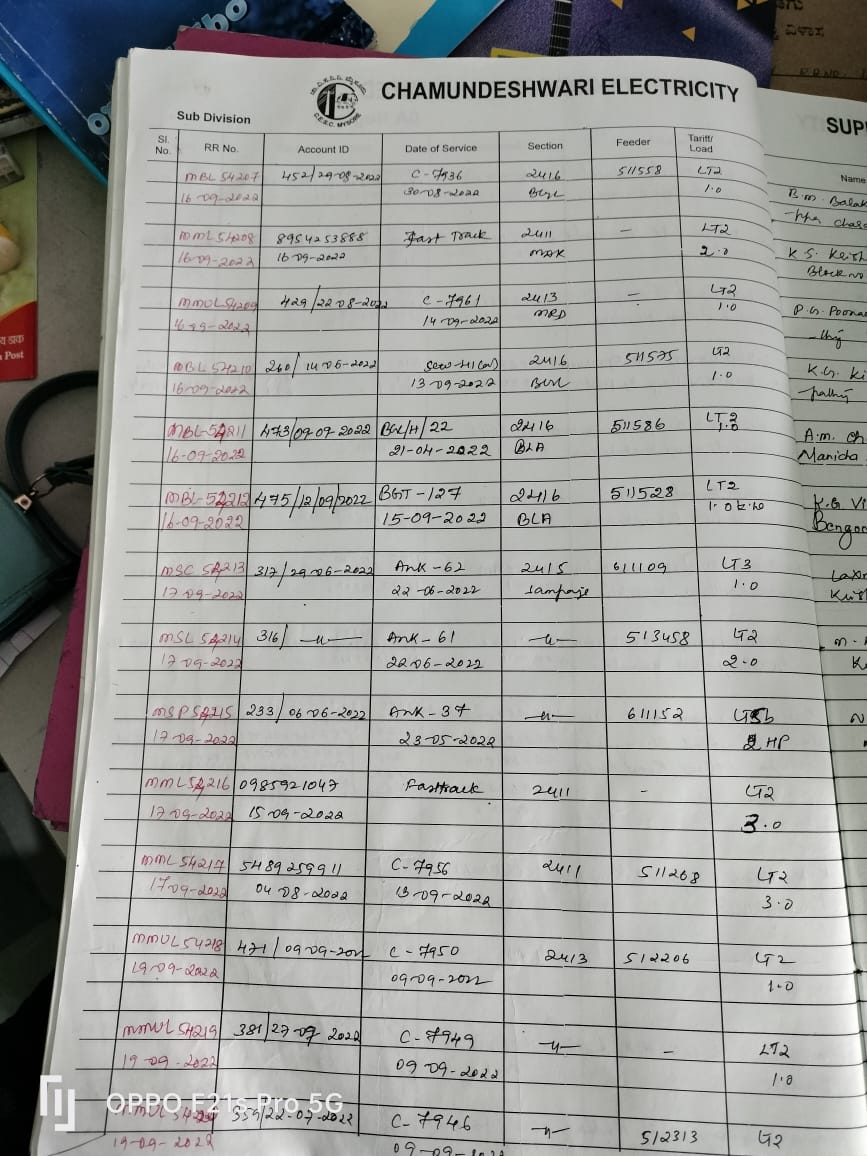 CHAMUNDESHWARI ELECTRICITY
C.E.S.C. MYSORE
SUP
Sub Division
Sl. No. RR No. Account ID Date of Service Section Feeder Tariff/ Load Name
MBL 54207 452/29-08-2022 C-7936 2416 511558 LT2
16-09-2022 30-08-2022 1.0
B.m. Balak
MML 54208 8954253888 Fast Track 2411 — LT2
16-09-2022 16-09-2022 MRK 2.0
K S.
Block no
MMUL 54209 429/22-08-2022 C-7961 2413 — LT2
16-09-2022 14-09-2022 MRD 1.0
P.G. Poona
MBL 54210 260/14-06-2022 2416 511575 LT2
16-09-2022 13-09-2022 1.0
K.G. Ki
MBL-54211 473/09-09-2022 BGL/H/22 2416 511586 LT2
16-09-2022 21-04-2022 BLA 1.0
A.m. Ch
Manida
MBL-54212 475/12/09/2022 BGTT-127 2416 511528 LT2
16-09-2022 15-09-2022 BLA
K.G. Vi
Bengo
MSC 54213 317/29-06-2022 Ank-62 2415 611109 LT3
17-09-2022 22-06-2022 Sampaje 1.0
Laxm
MSL 54214 316/ —"— Ank-61 —"— 513458 LT2
17-09-2022 22-06-2022 2.0
MSP 54215 233/06-06-2022 Ank-37 —"— 611152 LT5b
17-09-2022 23-05-2022 2 HP
MML 54216 0985921047 Fasttrack 2411 - LT2
17-09-2022 15-09-2022 3.0
MML 54217 5489259911 C-7956 2411 511268 LT2
17-09-2022 04-08-2022 13-09-2022 3.0
MMUL 54218 471/09-09-2022 C-7950 2413 512206 LT2
19-09-2022 09-09-2022 1.0
MMUL 54219 381/27-07-2022 C-7949 —"— — LT2
19-09-2022 09-09-2022 1.0
359/22-07-2022 C-7946 —"— 512313 LT2
19-09-2022
OPPO F21s Pro 5G
Post